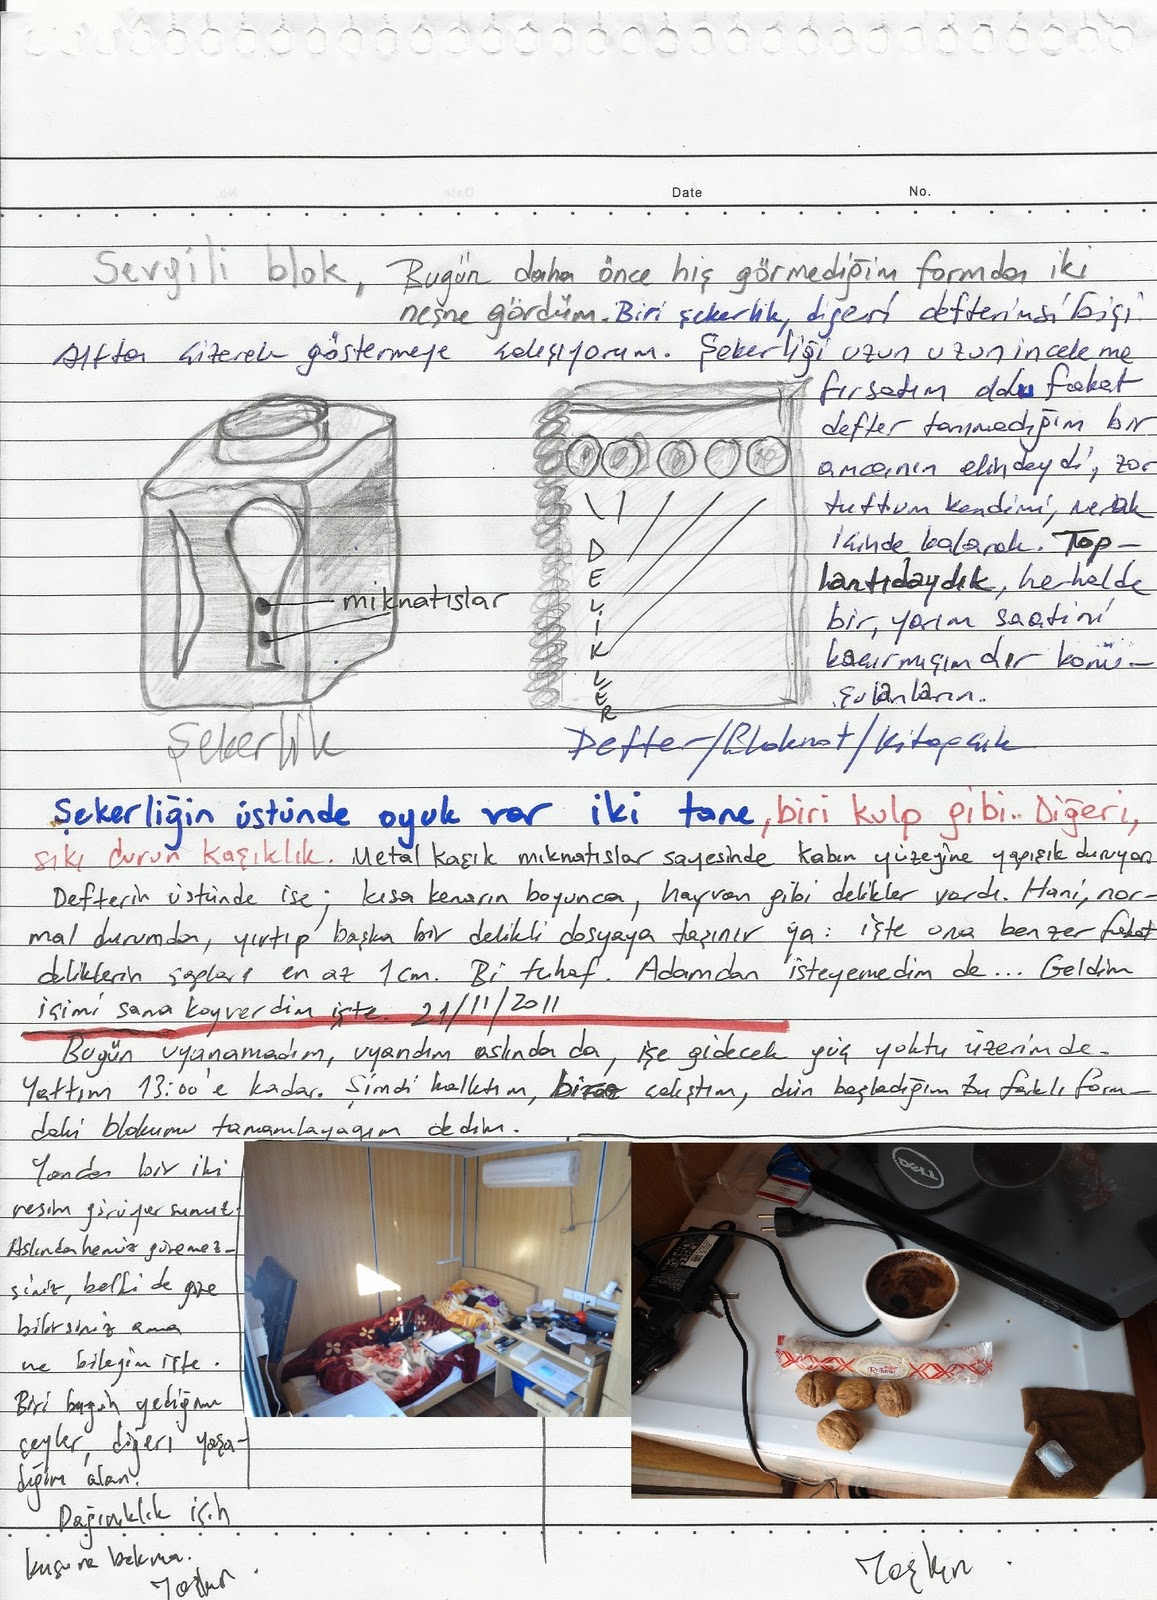 Date No.
Sevgili blok, Bugün daha önce hiç görmediğim formda iki
nesne gördüm. Biri şekerlik, diğeri defterimsi bişi.
Altta çizerek göstermeye çalışıyorum. Şekerliği uzun uzun inceleme
fırsatım oldu fakat
defter tanımadığım bir
amcanın elindeydi, zor
tuttum kendimi, merak
içinde kalarak. Top-
lantıdaydık, herhalde
bir, yarım saatini
kaçırmışımdır konu-
şulanların.
mıknatıslar
DELİKLER
Şekerlik
Defter/Bloknot/Kitapçık
Şekerliğin üstünde oyuk var iki tane, biri kulp gibi.. Diğeri,
sıkı durun kaşıklık. Metal kaşık mıknatıslar sayesinde kabın yüzeyine yapışık duruyor
Defterin üstünde ise; kısa kenarın boyunca, hayvan gibi delikler vardı. Hani, nor-
mal durumda, yırtıp başka bir delikli dosyaya taşınır ya: işte ona benzer fakat
deliklerin çapları en az 1cm. Bi tuhaf. Adamdan isteyemedim de... Geldim
içimi sana koyverdim işte. 21/11/2011
Bugün uyanamadım, uyandım aslında da, işe gidecek güç yoktu üzerimde.
Yattım 13:00'e kadar. Şimdi kalktım, biraz çalıştım, dün başladığım bu farklı form-
daki blokumu tamamlayayım dedim.
Yanda bir iki
resim görüyorsunuz.
Aslında henüz göremez-
siniz, belki de göre
bilirsiniz ama
ne bileyim işte.
Biri bugün yediğim
şeyler, diğeri yaşa-
dığım alan.
Dağınıklık için
kusura bakma.
Taşkın
DELL
Taşkın